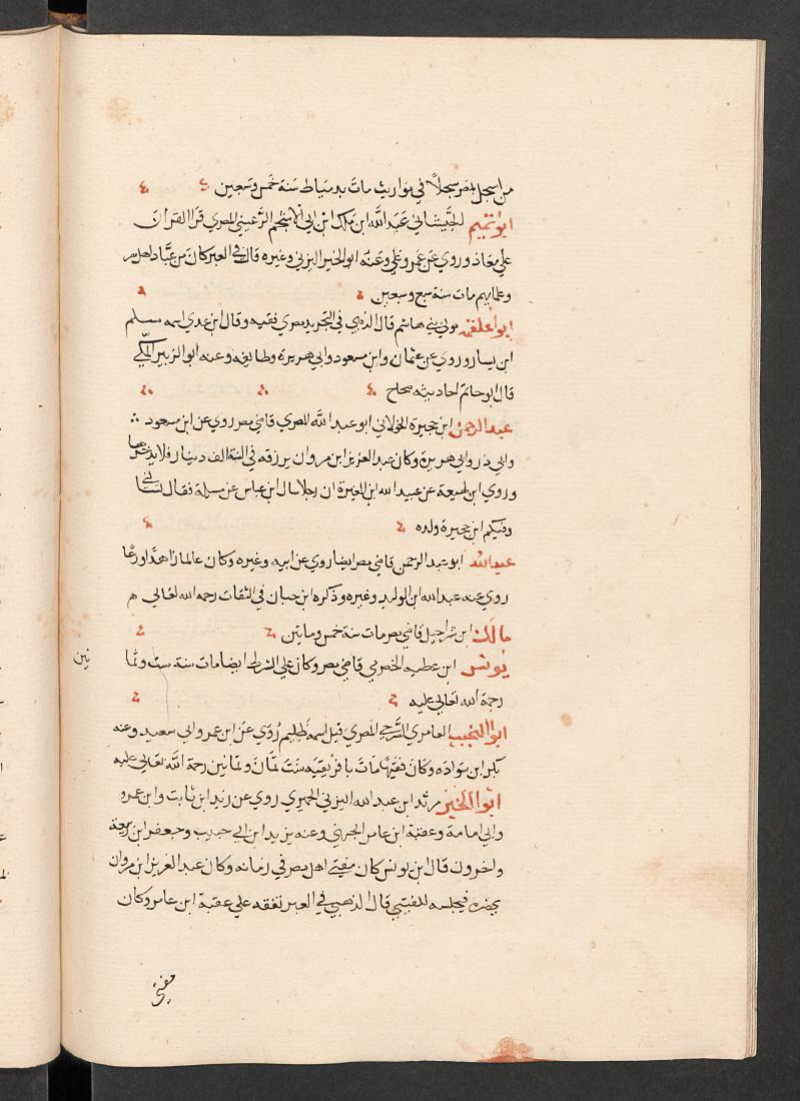 من اسجل بمصر سجلاً في مواريث مات بدمياط سنة خمس وسبعين
ابو تميم الجيشاني عبد الله ابن ملك ابن ابي الاسحم الرعيني المصري قرا القران
علي معاذ وروي عن عمر وعلي وعنه ابو الخير اليزني وغيره قال في العبر كان من عباد اهل مصر
وعلمايهم مات سنة سبع وسبعين
ابوا علقمه مولي بني هاشم قال الذهبي في التجريد مصري فقيه وقال ابن عدي اسمه مسلم
ابن يسار وروي عن عثمان وابن مسعود وابي هريرة وطايفه وعنه ابو الزبير المكي
قال ابو حاتم احاديثه صحاح
عبد الرحمن ابن حجيرة الخولاني ابو عبد الله المصري قاضي مصر روي عن ابن مسعود
وابي ذر وابي هريرة وكان عبد العزيز ابن مروان يرزقه في السنة الف دينار فلا يدخرها
وروي ابن لهيعة عن عبيد الله ابن المغيرة ان رجلا سال ابن عباس عن مسيلة فقال تسالني
وفيكم ابن حجيرة ولده
عبد الله ابو عبد الرحمن قاضي مصر ايضا روي عن ابيه وغيره وكان عالما زاهدا ورعا
روي عنه عبد الله ابن الوليد وغيره وذكره ابن حبان في الثقات رحمه الله تعالي
مالك ابن شراحيل قاضي مصر مات سنة خمس ومايتن
يونس ابن عطيه الحضرمي قاضي مصر وكان علي الشرط ايضا مات سنة ست وثما
نين
رحمة الله تعالي عليه
ابو النجيب العامري السرحي المصري قيل اسمه ظليم روي عن ابن عمر وابي سعيد وعنه
بكر ابن سواده وكان فقيها مات بافريقيه سنت ثمان وثمانين رحمة الله تعالي عليه
ابوا الخير مرثد ابن عبد الله اليزني الحميري روي عن زيد ابن ثابت وابن عمرو
وابي امامة وعقبة ابن عامر الجهني وعنه يزيد ابن ابي حبيب وجعفر ابن ربيعة
واخرون قال ابن يونس كان مفتي اهل مصر في زمانه وكان عبد العزيز ابن مروان
يحضره فيجلسه للفتيي قال الذهبي في العبر تفقه علي عقبة ابن عامر وكان
مفتي